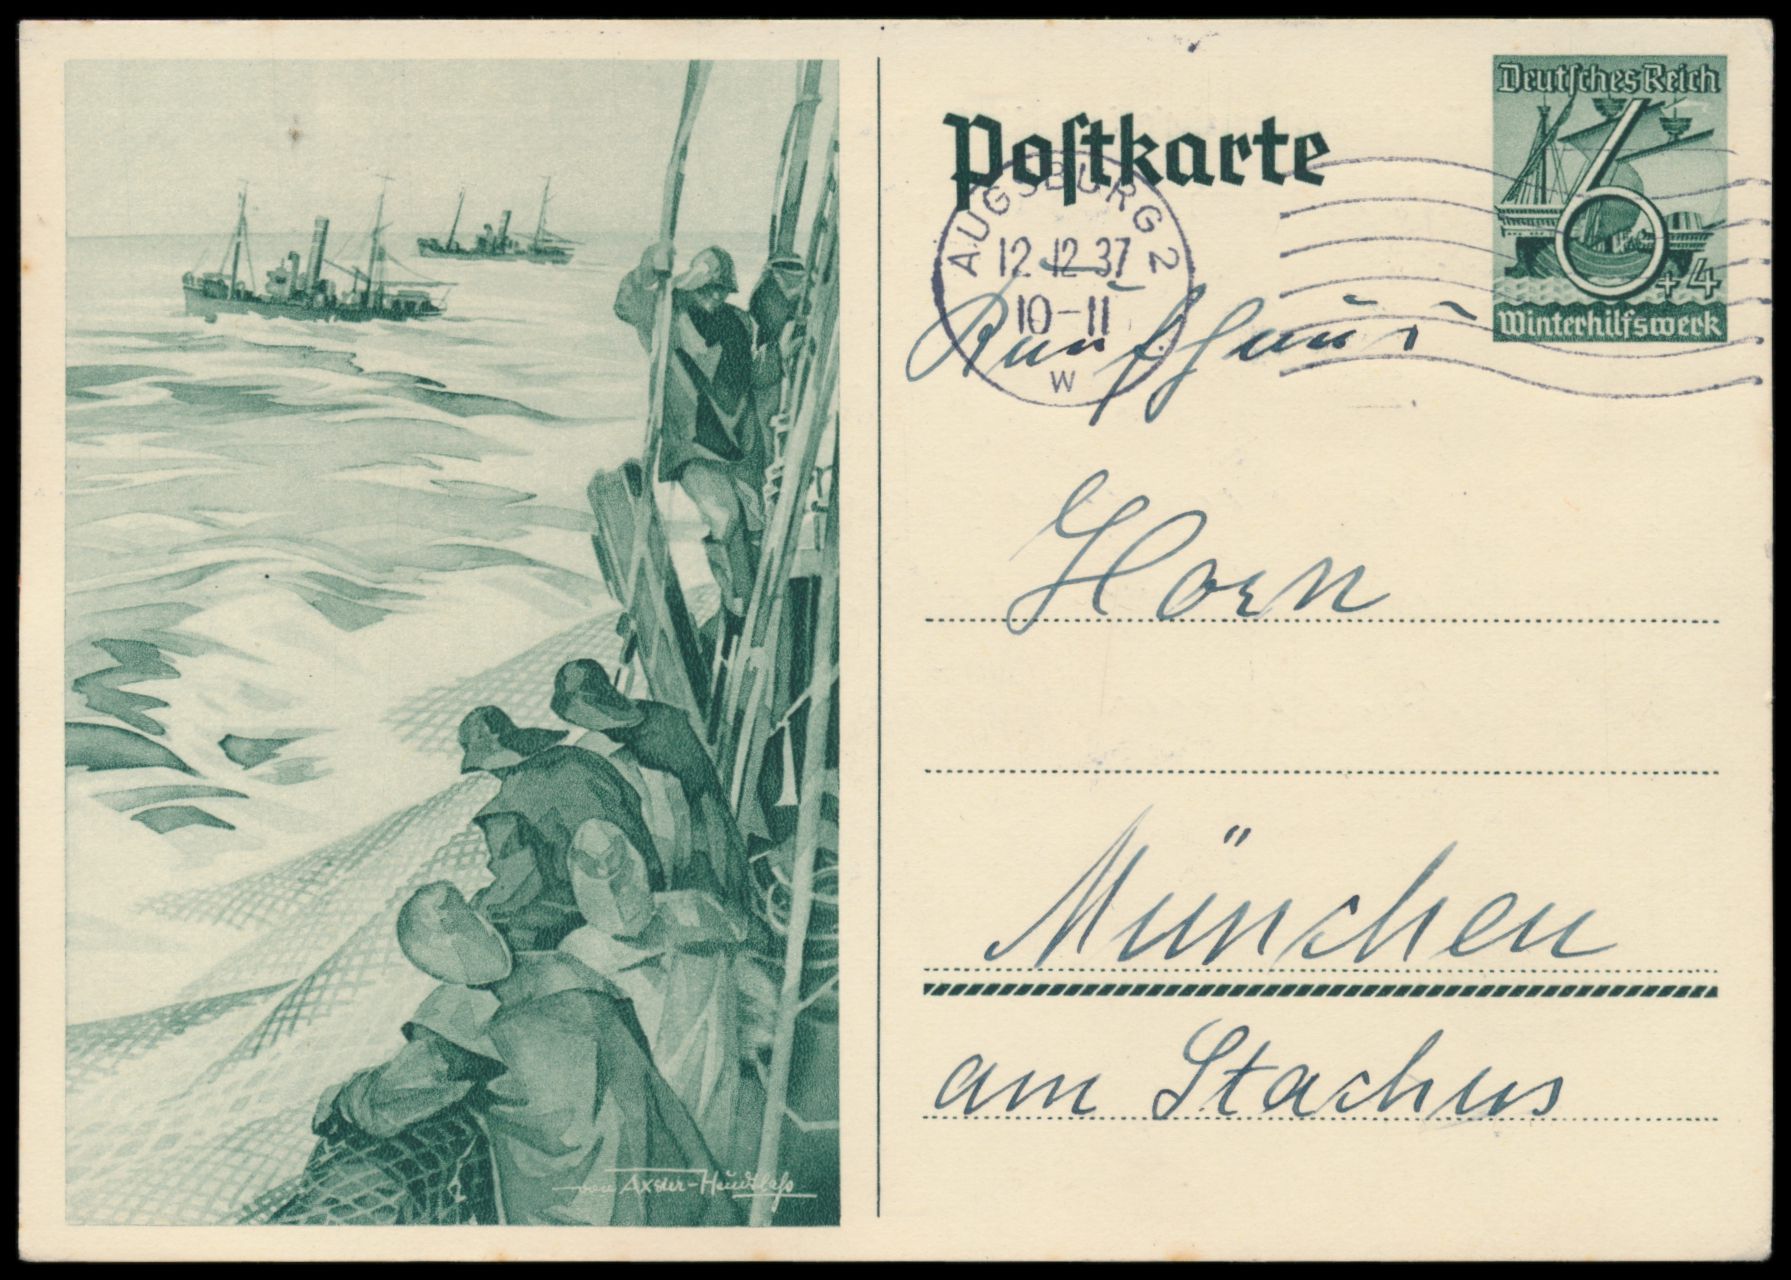 Deutsches Reich
Postkarte
6
+4
Winterhilfswerk
AUGSBURG 2
12.12.37
10-11
w
Kaufhaus
Horn
München
am Stachus
von Axster-Heudtlaß